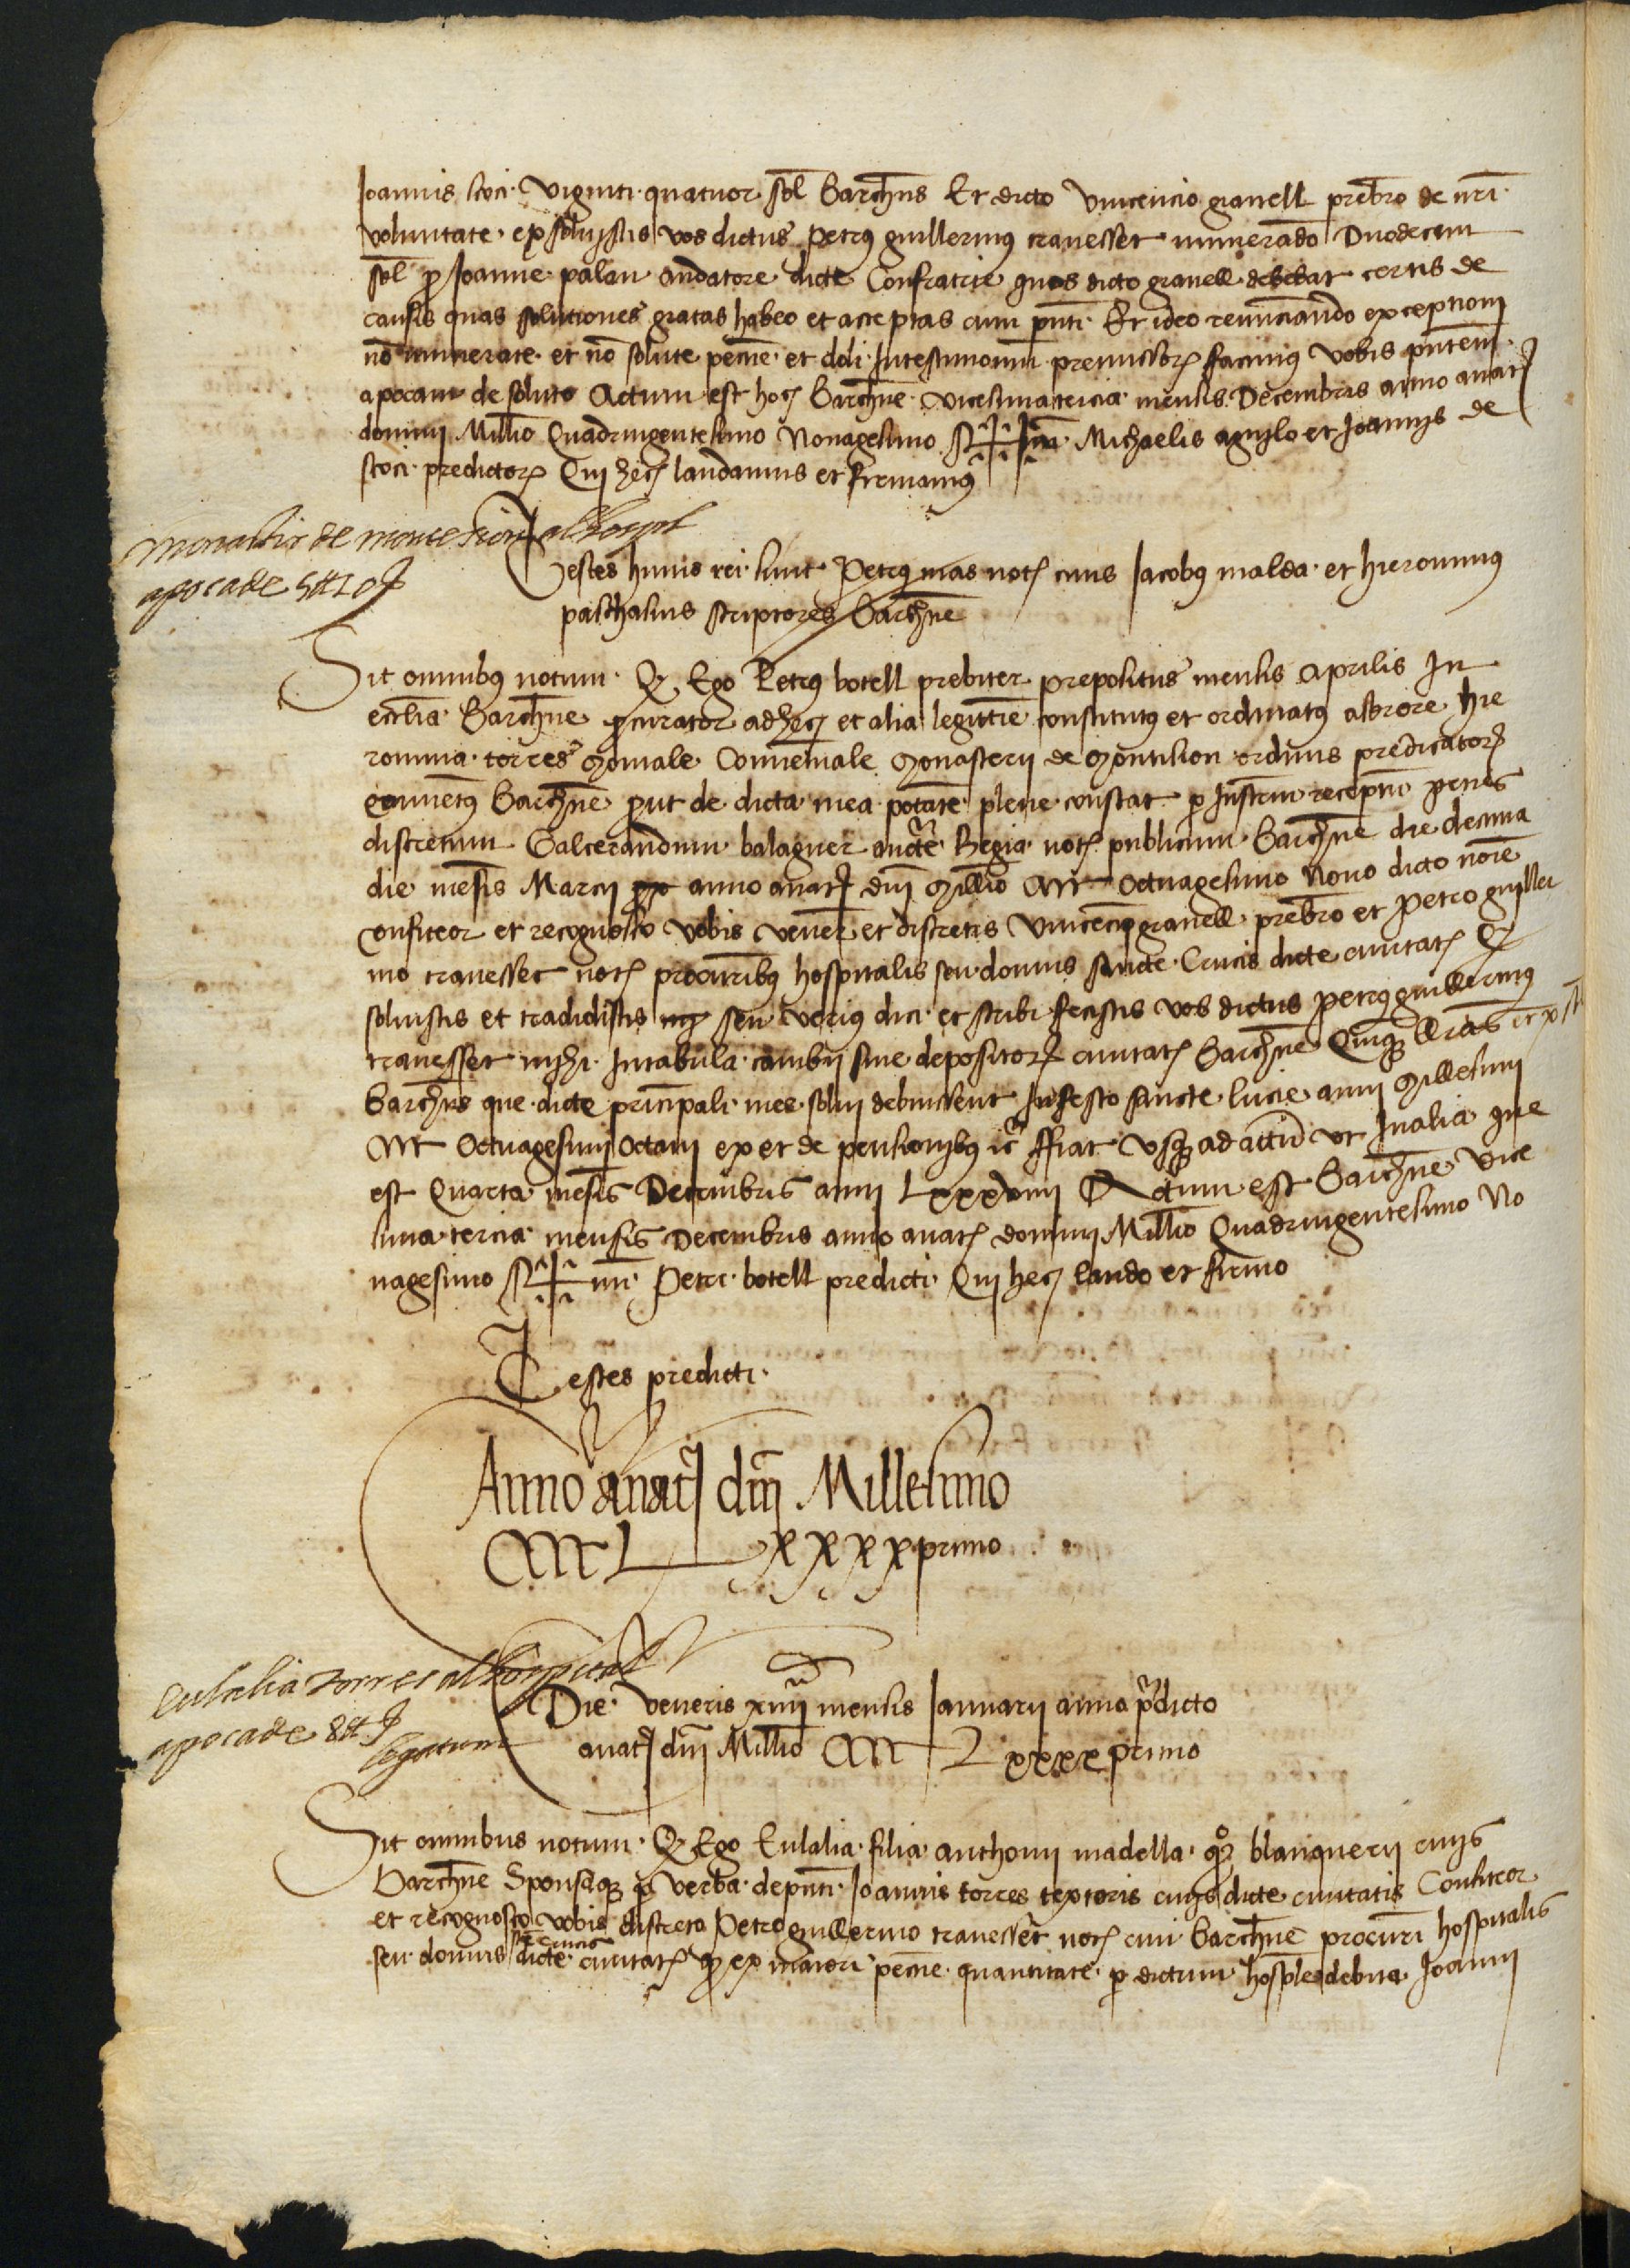 Joannis scoci viginti quatuor sol Barchns Et dicto vincencio granell prebro de nri
voluntate exsoluistis vos dictus Petrus guillermus trauesset numerando Duodecim
sol p Joanne palau andatore dicte Confratrie quos dicto granell debebat certis de
causis quas solutiones gratas habeo et acceptas cum pnti Et ideo renunciando exceptioni
no numerate et no solute pecnie et doli In testimonium premissor facimus vobis pntem
apocam de soluto Actum est hoc Barchne vicesimatercia mensis Decembris anno anat
domini Millio Quadringentesimo Nonagesimo Sig+num Michaelis agullo et Joannis de
scoci predictor Qui hec laudamus et firmamus
monastir de monte sion al hospl
apoca de 5 ₶ 10 s
Testes huius rei sunt Petrus mas not ciuis Jacobus malda et hieronimus
paschasius scriptores Barchne
Sit omnibus notum Q Ego Petrus botell prebiter prepositus mensis Aprilis In
ecclia Barchne pcurator ad hec et alia legittime constitutus et ordinatus a sorore hie
ronima torres moniale Conuentuale Monasterii de Montision ordinis predicator
conuentus Barchne put de dicta mea potate plene constat p Instrm receptum penes
discretum Galcerandum balaguer aucte Regia not publicum Barchne die decima
die mesis Marcii anno anat dni Millio CCCC Octuagesimo Nono dicto noie
Confiteor et recognosco vobis vener et discretis vincencio granell prebro et Petro guiller
mo trauesset not procuribus hospitalis seu domus sancte Crucis dicte ciuitat Q
soluistis et tradidistis seu verius dici et scribi fecistis vos dictus Petrus guillermus
trauesset mihi In tabula cambii siue depositor ciuitat Barchne Quinque libras et x sol
Barchns que dicte principali mee solui debuissent In festo sancte lucie anni Millesimi
CCCC Octuagesimi Octaui ex et de pensionibus ec ffiat vsque ad actum vt In alia que
est Quarta mesis Decembris anni Lxxxviiii Actum est Barchne vice
simatercia mensis Decembris anno anat domini Millio Quadringentesimo No
nagesimo Sig+num Petri botell predicti Qui hec laudo et firmo
Testes predicti
Anno anat dni Millesimo
CCCC Lxxxx primo
Eulalia torres al hospital
apoca de 8 ₶ s
legatum
Die Veneris xiiii mensis Januarii anno pdicto
anat dni Millio CCCC Lxxxx primo
Sit omnibus notum Q Ego Eulalia filia anthonii madella qo blanquerii ciuis
Barchne Sponsaque p verba de pnti Joannis torres textoris ciuis dicte ciuitatis Confiteor
et recognosco vobis discreto Petro guillermo trauesset not ciui Barchne procuri hospitalis
seu domus ste crucis dicte ciuitat q ex maiori pecnie quantitate p dictum hosple debita Joanni